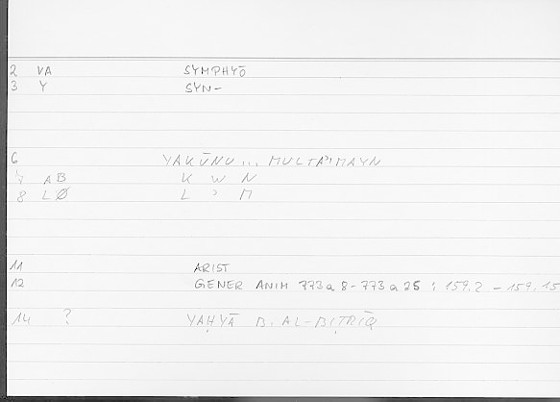 2 VA SYMPHYŌ
3 Y SYN-
6 YAKŪNU ... MULTAʾIMAYN
7 AB K W N
8 LØ L ʾ M
11 ARIST
12 GENER ANIM 773a8-773a25 ; 159.2 - 159.15
14 ? YAḤYĀ B. AL-BIṬRĪQ